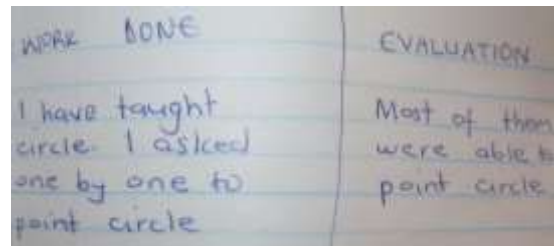 WORK DONE
I have taught
circle. I asked
one by one to
point circle
EVALUATION
Most of them
were able to
point circle